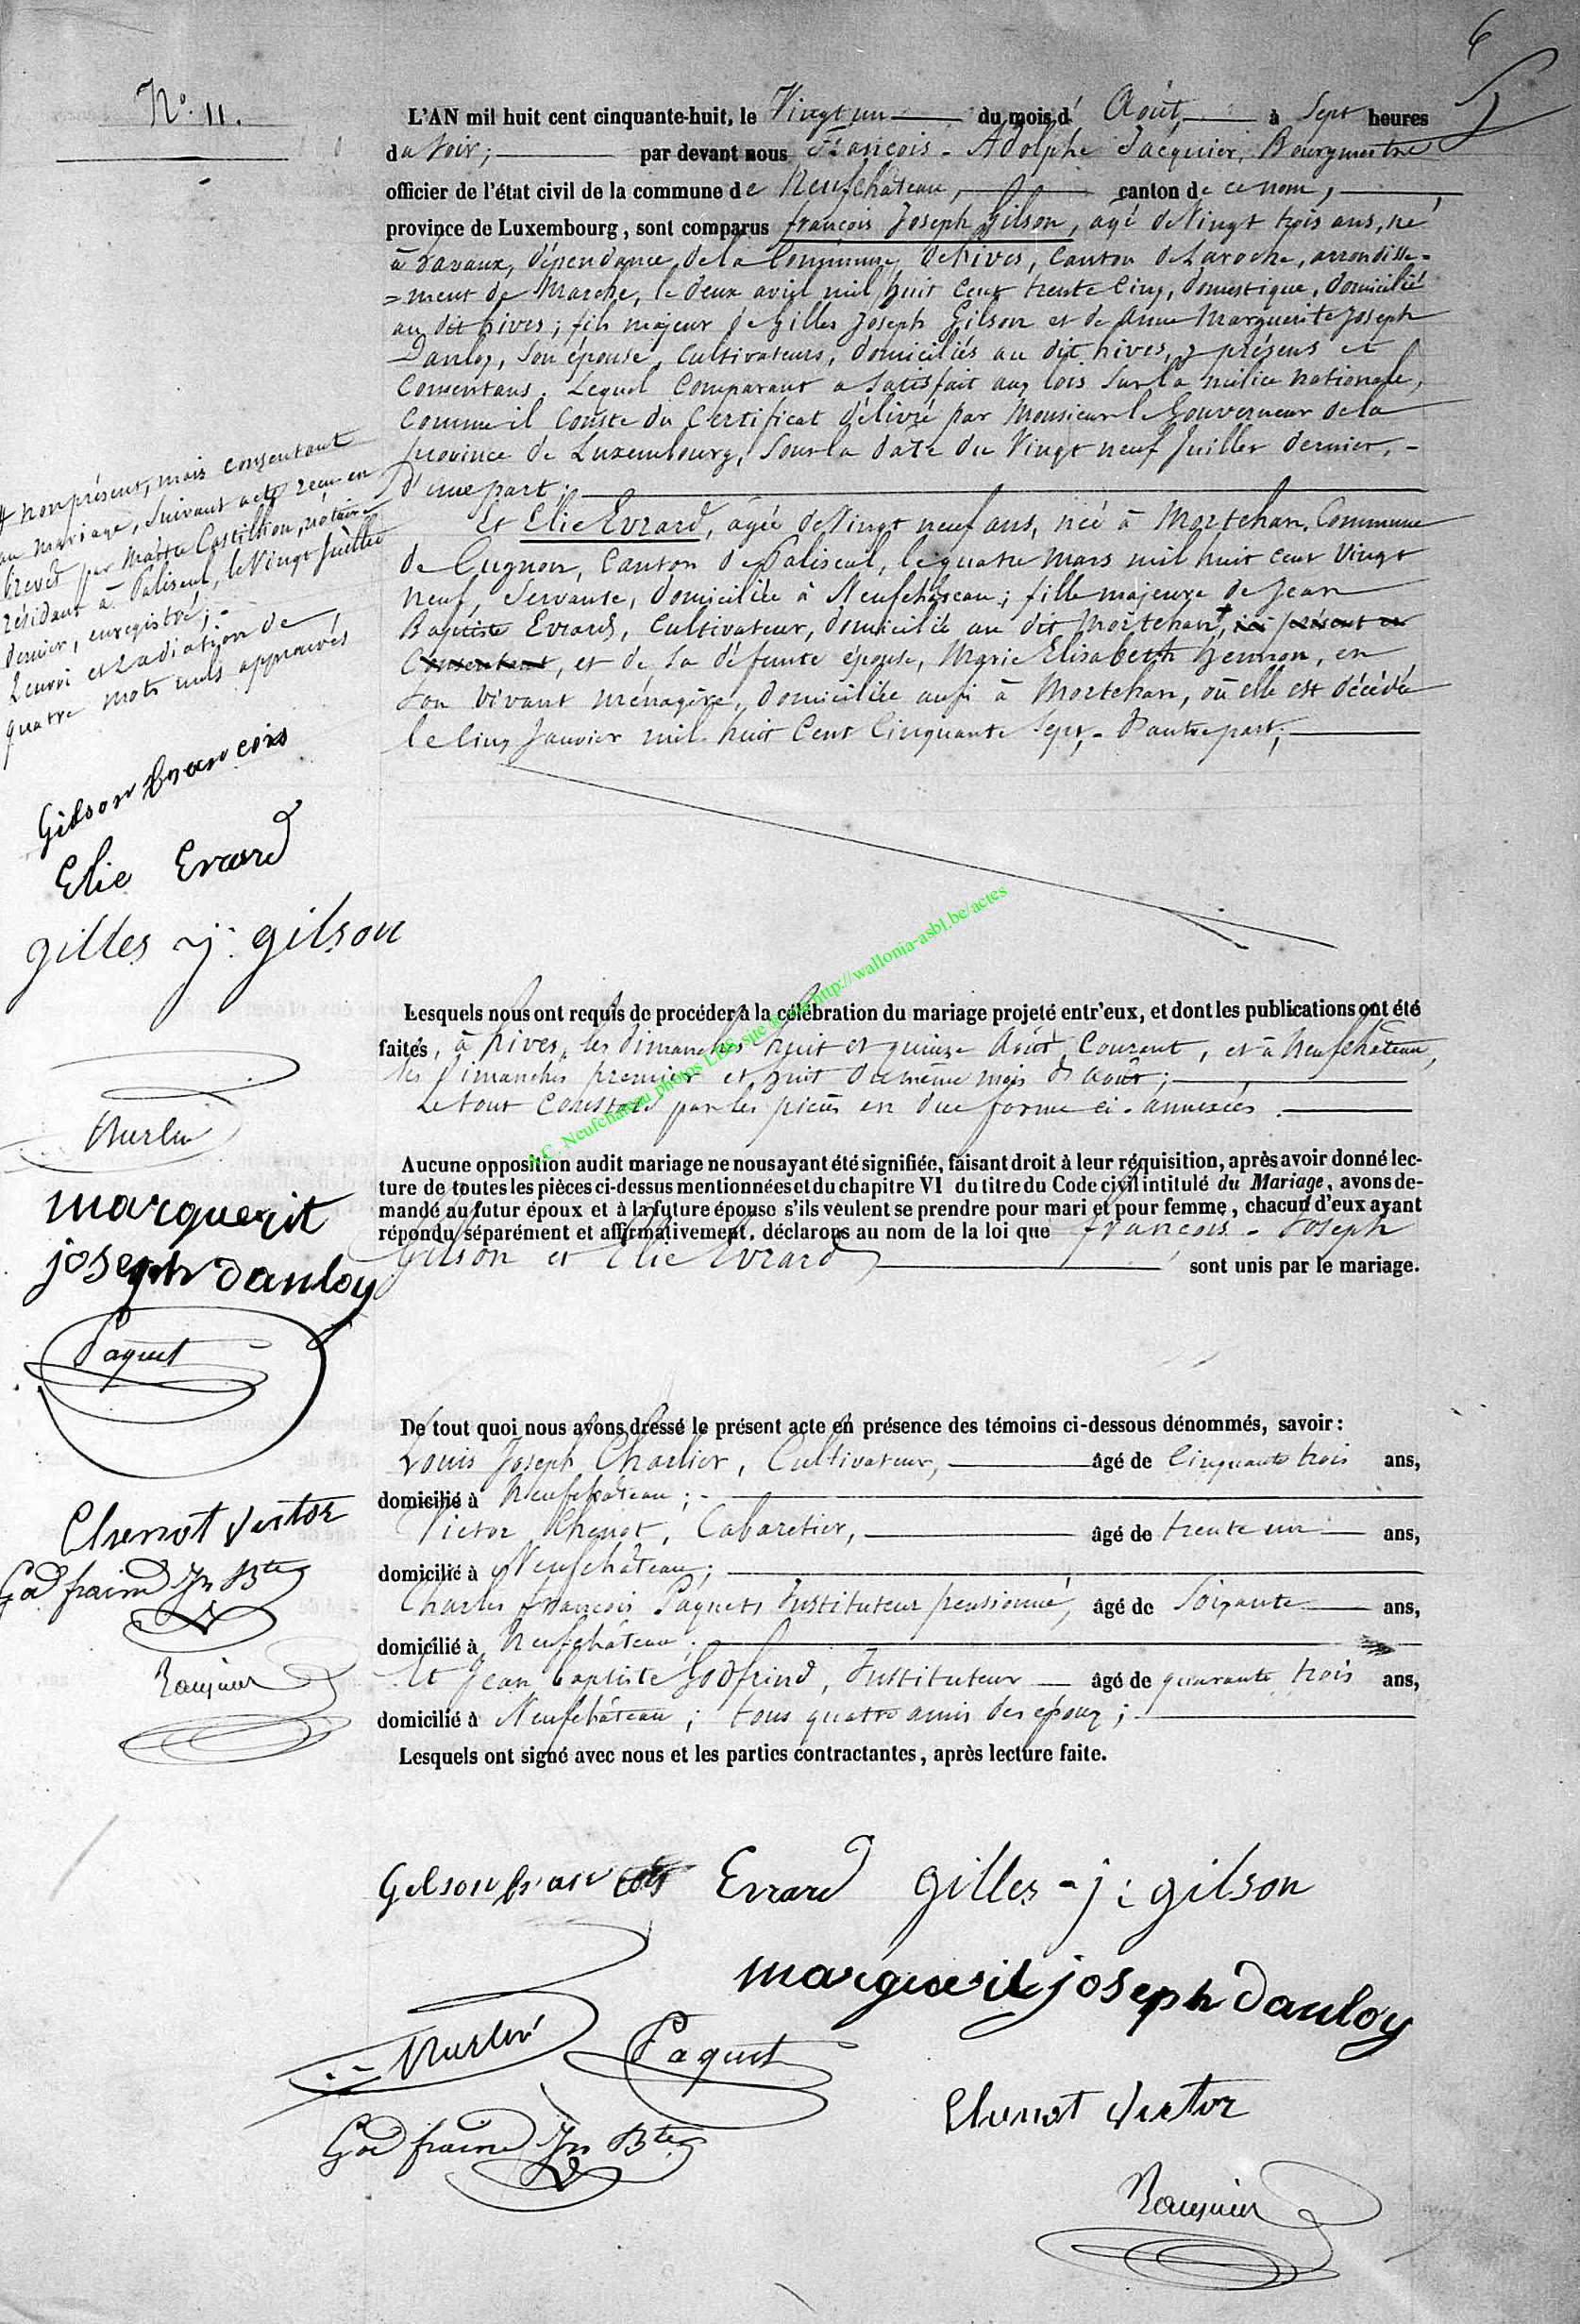 6
N° 11.
L'AN mil huit cent cinquante-huit, le Vingt un du mois d' Août, à Sept heures
du soir; par devant nous François-Adolphe Jacquier, Bourgmestre
officier de l'état civil de la commune de Neufchâteau, canton de ce nom,
province de Luxembourg, sont comparus françois Joseph Gilson, agé de Vingt trois ans, né
à ravaux, dépendance de la Commune de hives, Canton de Laroche, arrondisse=
=ment de Marche, le deux avril mil huit Cent trente Cinq, domestique, domicilié
au dit hives; fils majeur de Gilles Joseph Gilson et de anne Marguerite Joseph
Danloy, son épouse, Cultivateurs, domiciliés au dit hives, présens et
Consentans. Lequel Comparant a satisfait aux lois sur la milice nationale,
Comme il Conste du Certificat délivré par Monsieur le Gouverneur de la
province de Luxembourg, sous la date du Vingt neuf Juillet dernier, -
d'une part;
Et Elie Evrard, agée de Vingt neuf ans, née à Mortehan, Commune
de Cugnon, Canton de Paliseul, le quatre Mars mil huit cent vingt
neuf, Servante, domiciliée à Neufchâteau; fille majeure de Jean
Baptiste Evrard, Cultivateur, domicilié au dit Mortehan, ici présent et
Consentant, et de sa défunte épouse, Marie Elisabeth henrion, en
son vivant ménagère, domiciliée aussi à Mortehan, où elle est décédée
le Cinq Janvier mil huit Cent Cinquante Sept, - D'autre part;
# non présent, mais consentant
au mariage, suivant acte reçu en
brevet par Maître Castilhon, notaire
résidant à Paliseul, le Vingt Juillet
dernier, enregistré; -
Renvoi et radiation de
quatre mots nuls approuvés
Gilson francois
Elie Evrard
gilles j: gilson
marguerit
joseph danloy
Paquet
Chenot Victor
Godfraind Jn Bte
Lesquels nous ont requis de procéder à la célébration du mariage projeté entr'eux, et dont les publications ont été
faites, à hives, les dimanches huit et quinze Août Courant, et à Neufchâteau,
les Dimanches premier et huit du même mois d'août;
Le tout Constaté par les pièces en due forme ci-annexées.
A.C. Neufchateau photos LDS site http://wallonia-asbl.be/actes
Aucune opposition audit mariage ne nous ayant été signifiée, faisant droit à leur réquisition, après avoir donné lec-
ture de toutes les pièces ci-dessus mentionnées et du chapitre VI du titre du Code civil intitulé du Mariage, avons de-
mandé au futur époux et à la future épouse s'ils veulent se prendre pour mari et pour femme, chacun d'eux ayant
répondu séparément et affirmativement, déclarons au nom de la loi que françois-Joseph
Gilson et Elie Evrard sont unis par le mariage.
De tout quoi nous avons dressé le présent acte en présence des témoins ci-dessous dénommés, savoir:
Louis Joseph Charlier, Cultivateur, âgé de Cinquante trois ans,
domicilié à Neufchâteau;
Victor Chenot, Cabaretier, âgé de trente un ans,
domicilié à Neufchâteau;
Charles françois Paquet, Instituteur pensionné, âgé de Soixante ans,
domicilié à Neufchâteau;
Et Jean baptiste Godfrind, Instituteur âgé de quarante trois ans,
domicilié à Neufchâteau; tous quatre amis des époux;
Lesquels ont signé avec nous et les parties contractantes, après lecture faite.
Gilson francois Evrard gilles-j: gilson
marguerit joseph danloy
Paquet
Chenot Victor
Godfraind Jn Bte